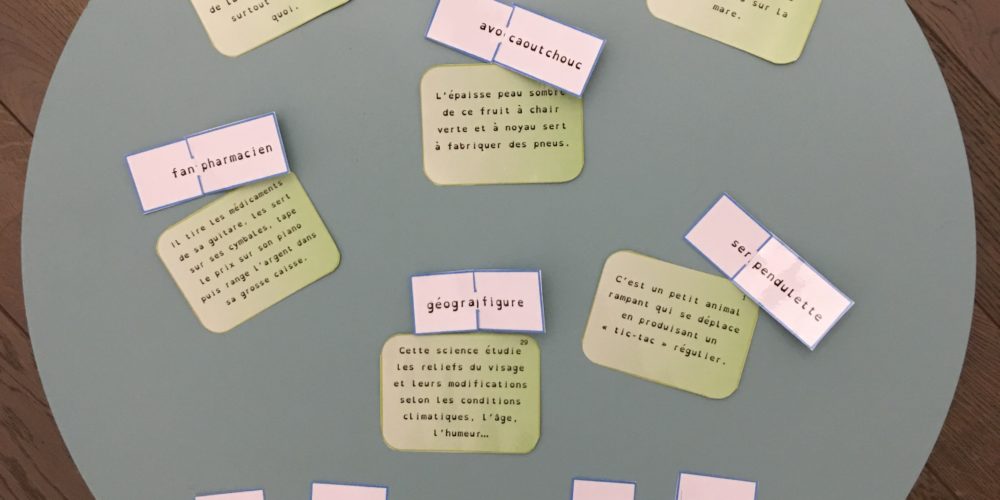 surtout
quoi.
sur la
mare.
avo caoutchouc
L'épaisse peau sombre
de ce fruit à chair
verte et à noyau sert
à fabriquer des pneus.
fan pharmacien
Il tire les médicaments
de sa guitare, les sert
sur ses cymbales, tape
le prix sur son piano
puis range l'argent dans
sa grosse caisse.
ser pendulette
C'est un petit animal
rampant qui se déplace
en produisant un
« tic-tac » régulier.
géogra figure
29
Cette science étudie
les reliefs du visage
et leurs modifications
selon les conditions
climatiques, l'âge,
l'humeur…